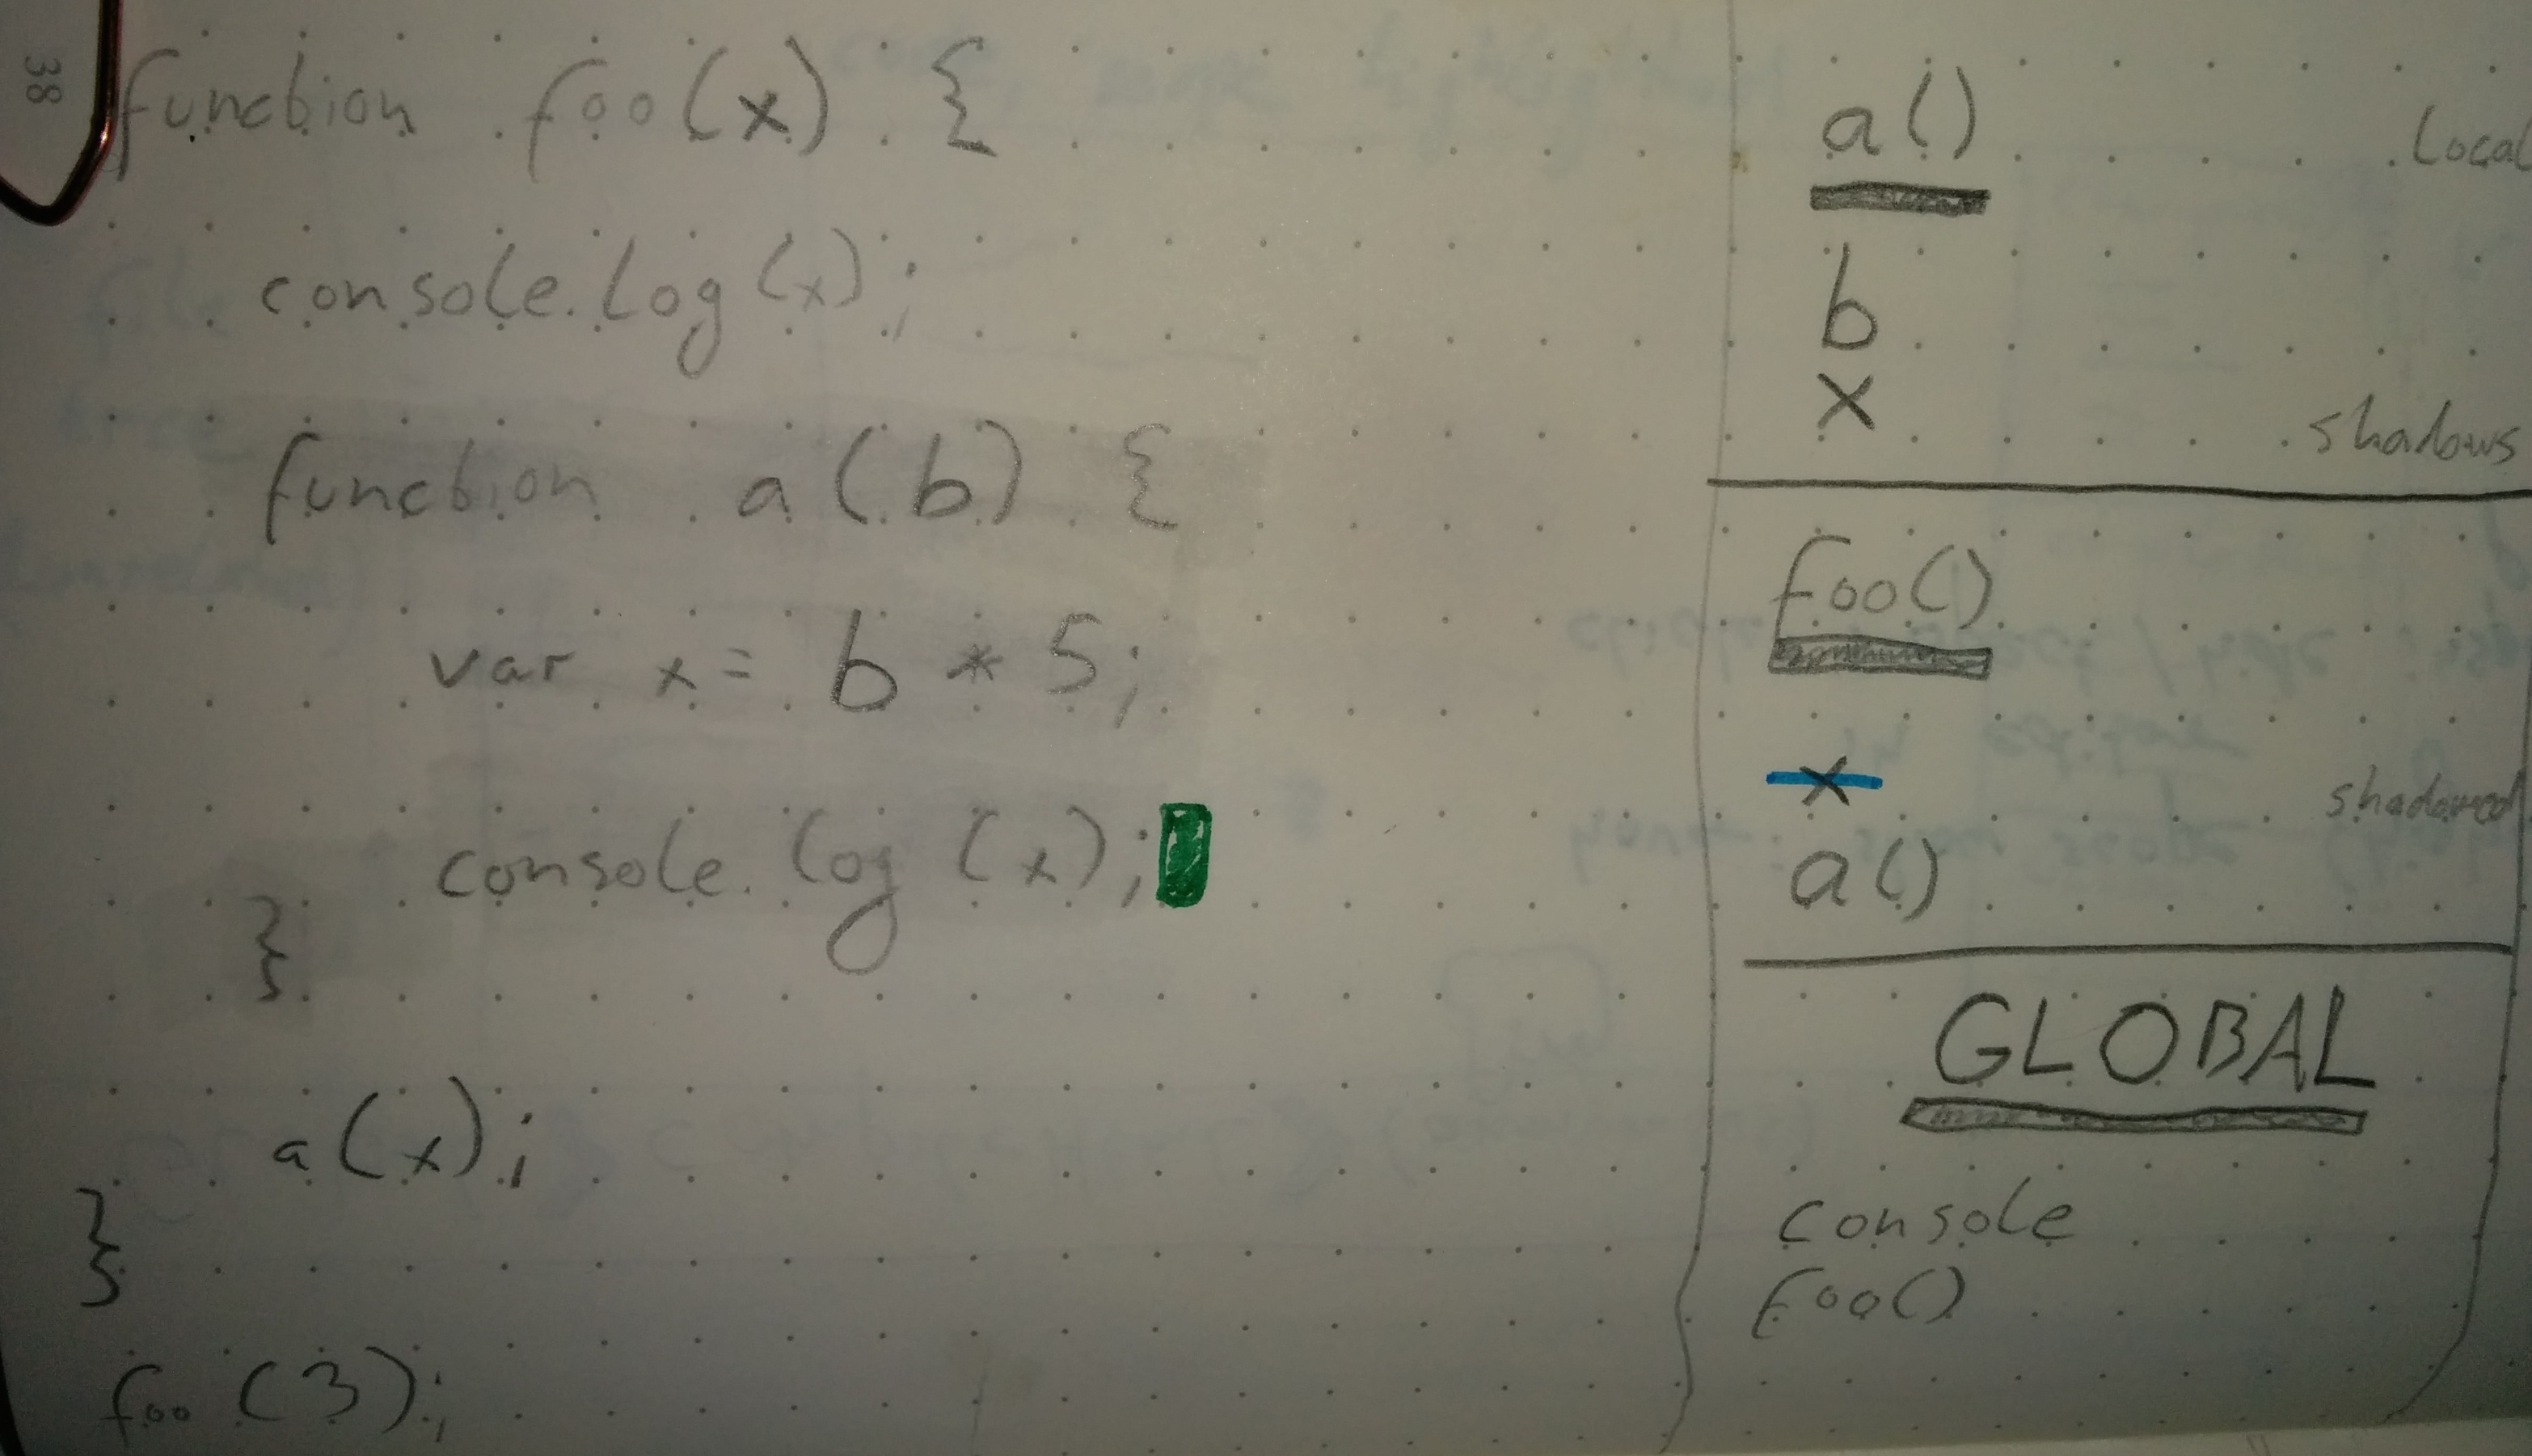 38
function foo(x) {
console.log(x);
function a(b) {
var x = b * 5;
console.log(x);
}
a(x);
}
foo(3);
a() local
b
x shadows
foo()
x shadowed
a()
GLOBAL
console
foo()